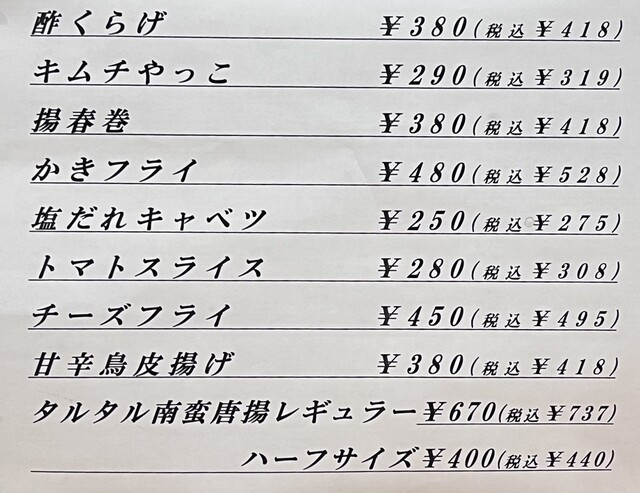 酢くらげ ￥380(税込￥418)
キムチやっこ ￥290(税込￥319)
揚春巻 ￥380(税込￥418)
かきフライ ￥480(税込￥528)
塩だれキャベツ ￥250(税込￥275)
トマトスライス ￥280(税込￥308)
チーズフライ ￥450(税込￥495)
甘辛鳥皮揚げ ￥380(税込￥418)
タルタル南蛮唐揚レギュラー￥670(税込￥737)
ハーフサイズ￥400(税込￥440)